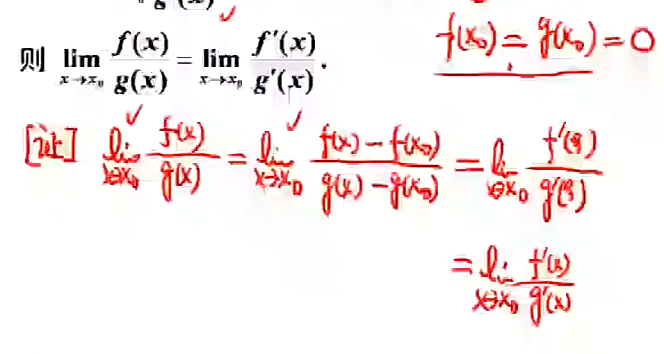 g(x)
则 lim x→x₀ f(x)/g(x) = lim x→x₀ f'(x)/g'(x).
f(x₀) = g(x₀) = 0
[证] lim x→x₀ f(x)/g(x) = lim x→x₀ (f(x) - f(x₀))/(g(x) - g(x₀)) = lim x→x₀ f'(ξ)/g'(ξ)
= lim x→x₀ f'(x)/g'(x)